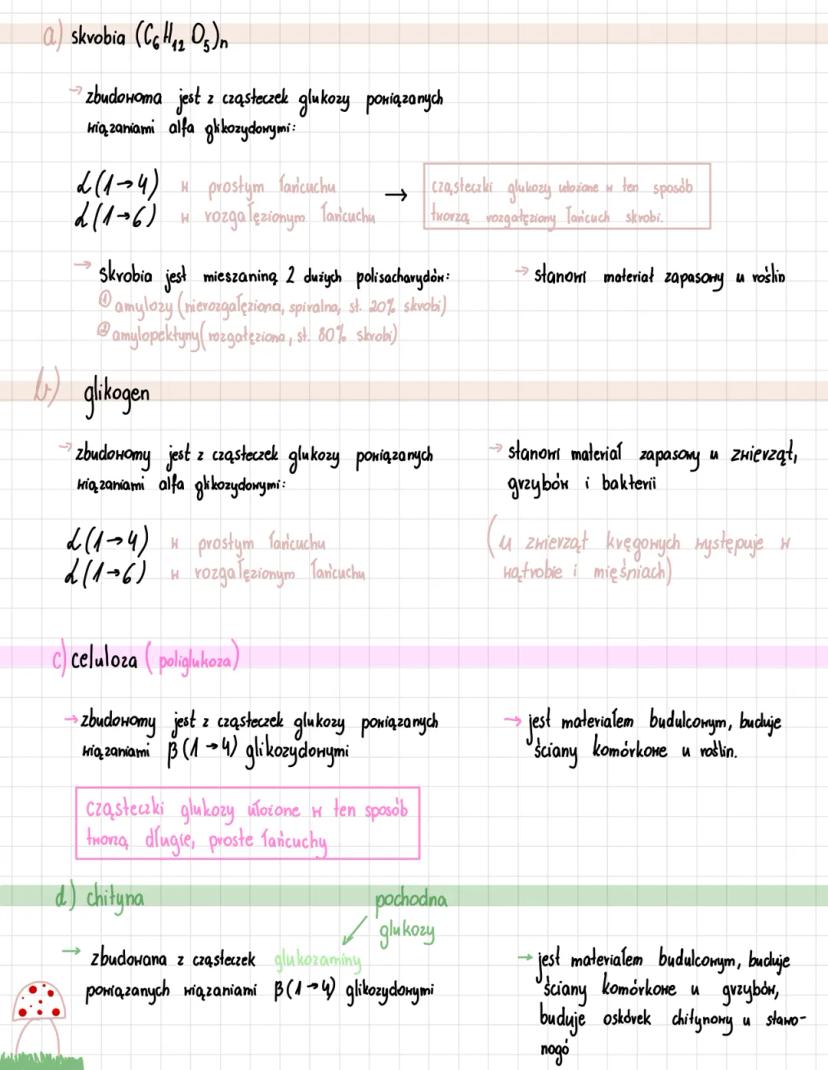 a) skrobia (C₆H₁₂O₅)n
→ zbudowana jest z cząsteczek glukozy powiązanych
wiązaniami alfa glikozydowymi:
α(1→4) w prostym łańcuchu
α(1→6) w rozgałęzionym łańcuchu
→
cząsteczki glukozy ułożone w ten sposób
tworzą rozgałęziony łańcuch skrobi.
→ Skrobia jest mieszaniną 2 dużych polisacharydów:
① amylozy (nierozgałęziona, spiralna, st. 20% skrobi)
② amylopektyny (rozgałęziona, st. 80% skrobi)
→ stanowi materiał zapasowy u roślin
b) glikogen
→ zbudowamy jest z cząsteczek glukozy powiązanych
wiązaniami alfa glikozydowymi:
α(1→4) w prostym łańcuchu
α(1→6) w rozgałęzionym łańcuchu
→ stanowi materiał zapasowy u zwierząt,
grzybów i bakterii
(u zwierząt kręgowych występuje w
wątrobie i mięśniach)
c) celuloza (poliglukoza)
→ zbudowamy jest z cząsteczek glukozy powiązanych
wiązaniami β(1→4) glikozydowymi
cząsteczki glukozy ułożone w ten sposób
tworzą długie, proste łańcuchy
→ jest materiałem budulcowym, buduje
ściany komórkowe u roślin.
d) chityna
pochodna
glukozy
→ zbudowana z cząsteczek glukozaminy
powiązanych wiązaniami β(1→4) glikozydowymi
→ jest materiałem budulcowym, buduje
ściany komórkowe u grzybów,
buduje oskórek chitynowy u stawo-
nogó